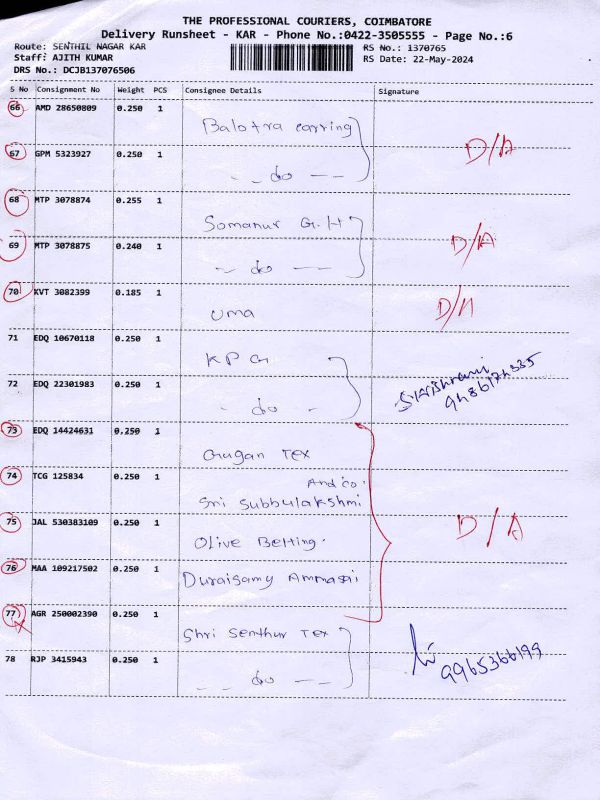 THE PROFESSIONAL COURIERS, COIMBATORE
Delivery Runsheet - KAR - Phone No.:0422-3505555 - Page No.:6
Route: SENTHIL NAGAR KAR
RS No.: 1370765
Staff: AJITH KUMAR
RS Date: 22-May-2024
DRS No.: DCJB137076506
S No Consignment No Weight PCS Consignee Details Signature
66 AMD 28650809 0.250 1
Balotra carring
67 GPM 5323927 0.250 1 D/A
-- do --
68 MTP 3078874 0.255 1
Somanur G.H
69 MTP 3078875 0.240 1 D/A
-- do --
70 KVT 3082399 0.185 1 D/A
uma
71 EDQ 10670118 0.250 1
KP G
72 EDQ 22301983 0.250 1
- do -
73 EDQ 14424631 0.250 1
Gugan Tex
74 TCG 125834 0.250 1 And co.
Sri Subbulakshmi
75 JAL 530383109 0.250 1 D/A
Olive Belting.
76 MAA 109217502 0.250 1
Duraisamy Ammasai
77 AGR 250002390 0.250 1
Shri Senthur Tex
78 RJP 3415943 0.250 1 9965366199
-- do --